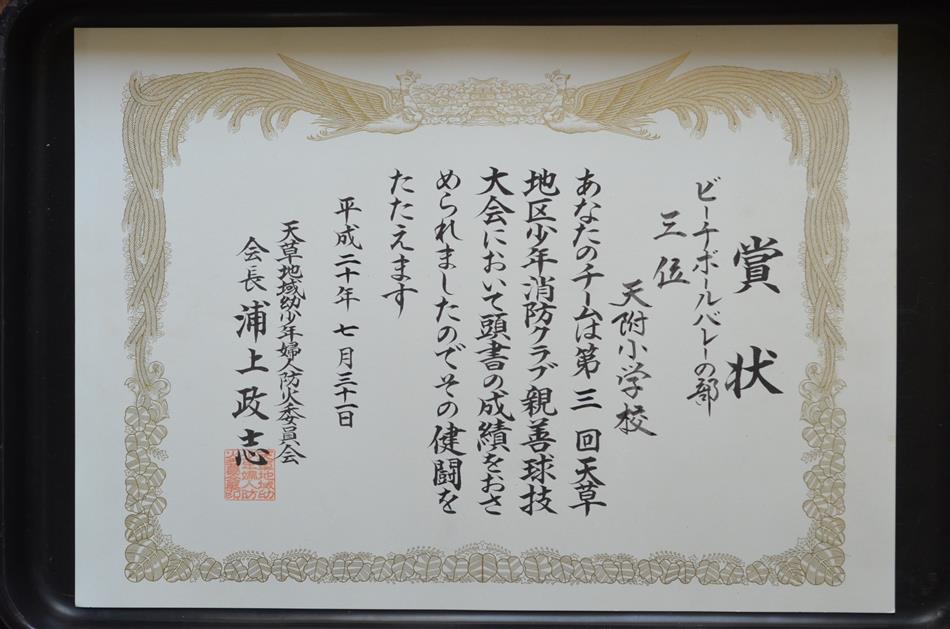 賞状
ビーチボールバレーの部
三位
天附小学校
あなたのチームは第三回天草
地区少年消防クラブ親善球技
大会において頭書の成績をおさ
められましたのでその健闘を
たたえます
平成二十年七月三十一日
天草地域幼少年婦人防火委員会
会長 浦上政志